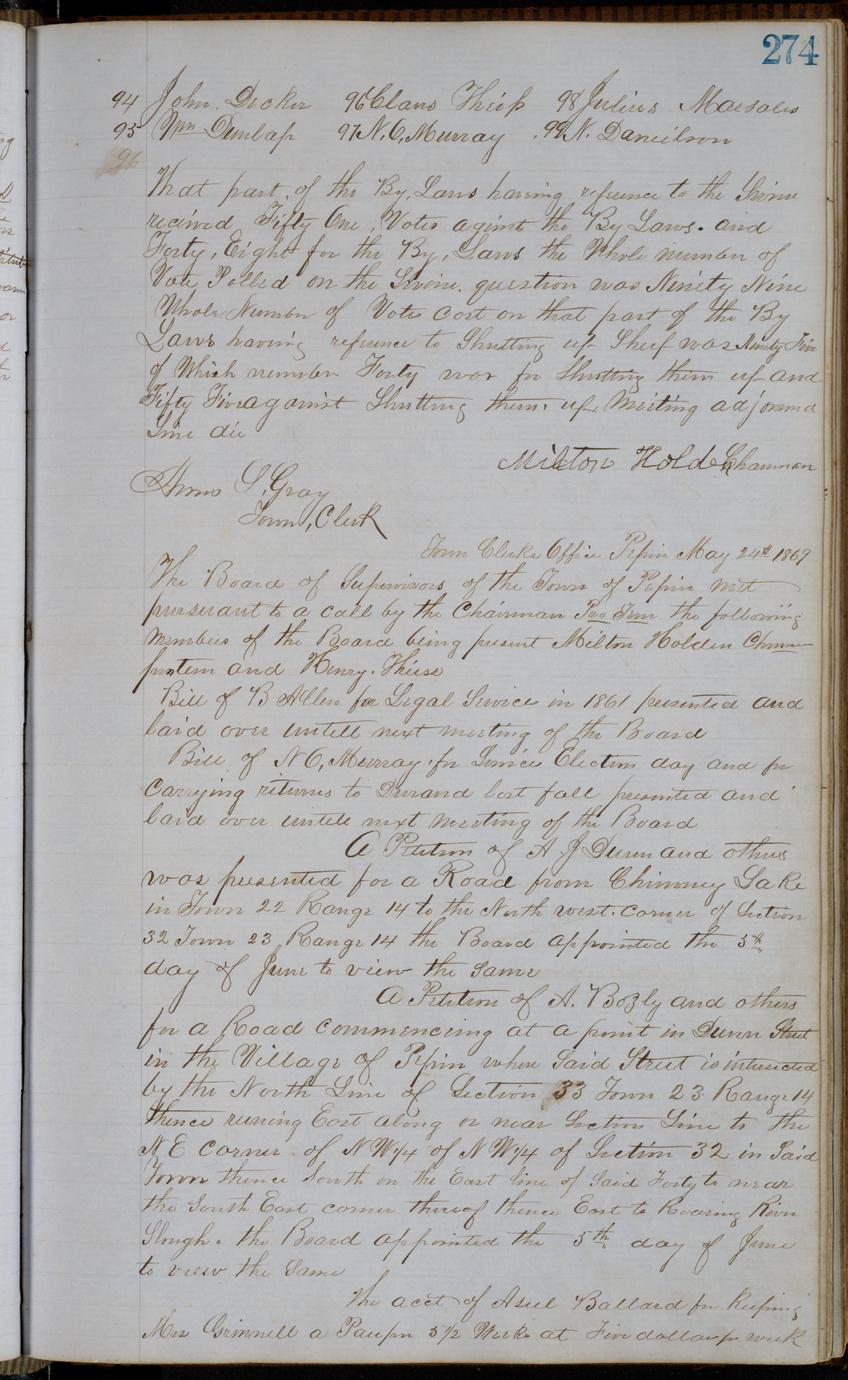 274
94 John Decker 96 Claus Thiep 98 Julius Marsales
95 Wm Dunlap 97 N. C, Murray 99 N. Daneilson
96
That part, of the By, Laws having reference to the Swine
recived Fifty One, Votes aginst the By Laws. and
Forty, Eight for the By, Laws the Whole number of
Vote Polled on the Swine question was Ninety Nine
Whole Number of Votes Cost on that part of the By
Laws having reference to Shutting up Sheep was Ninety Five
of Which number Forty was for Shutting them up and
Fifty Five against Shutting them up. Meeting adjorned
Sine die
Milton Holden Chairman
Amos S, Gray
Town, Clerk
Town Clerks Office Pepin May 24th 1869
The Board of Supervisors of the Town of Pepin met
purseuant to a call by the Chairman Pro Tem the following
members of the Board being present Milton Holden Chman
protem and Henry. Thiess
Bill of B Allen for Legal Service in 1861 presented and
laid over untill next meeting of the Board
Bill of N C, Murray for Service Election day and for
Carrying returns to Durand last fall presented and
laid over untill next meeting of the Board
A Petition of A J Dunn and others
was presented for a Road from Chimney Lake
in Town 22 Range 14 to the North west. corner of Section
32 Town 23 Range 14 the Board appointed the 5th
day of June to view the Same
A Petition of A. Bozly and others
for a Road commencing at a point in Dunn Street
in the Village of Pepin where Said Street is intersected
by the North Line of Section 33 Town 23 Range 14
thence runing East along or near Section Line to the
N E corner of N W 1/4 of N W 1/4 of Section 32 in Said
Town thence South on the East line of Said Forty to near
the South East corner thereof thence East to Roaring River
Slough. the Board appointed the 5th day of June
to view the Same
The acct of Asiel Ballard for keeping
Mrs Grinnell a Pauper 5 1/2 Weeks at Five dollars pr week